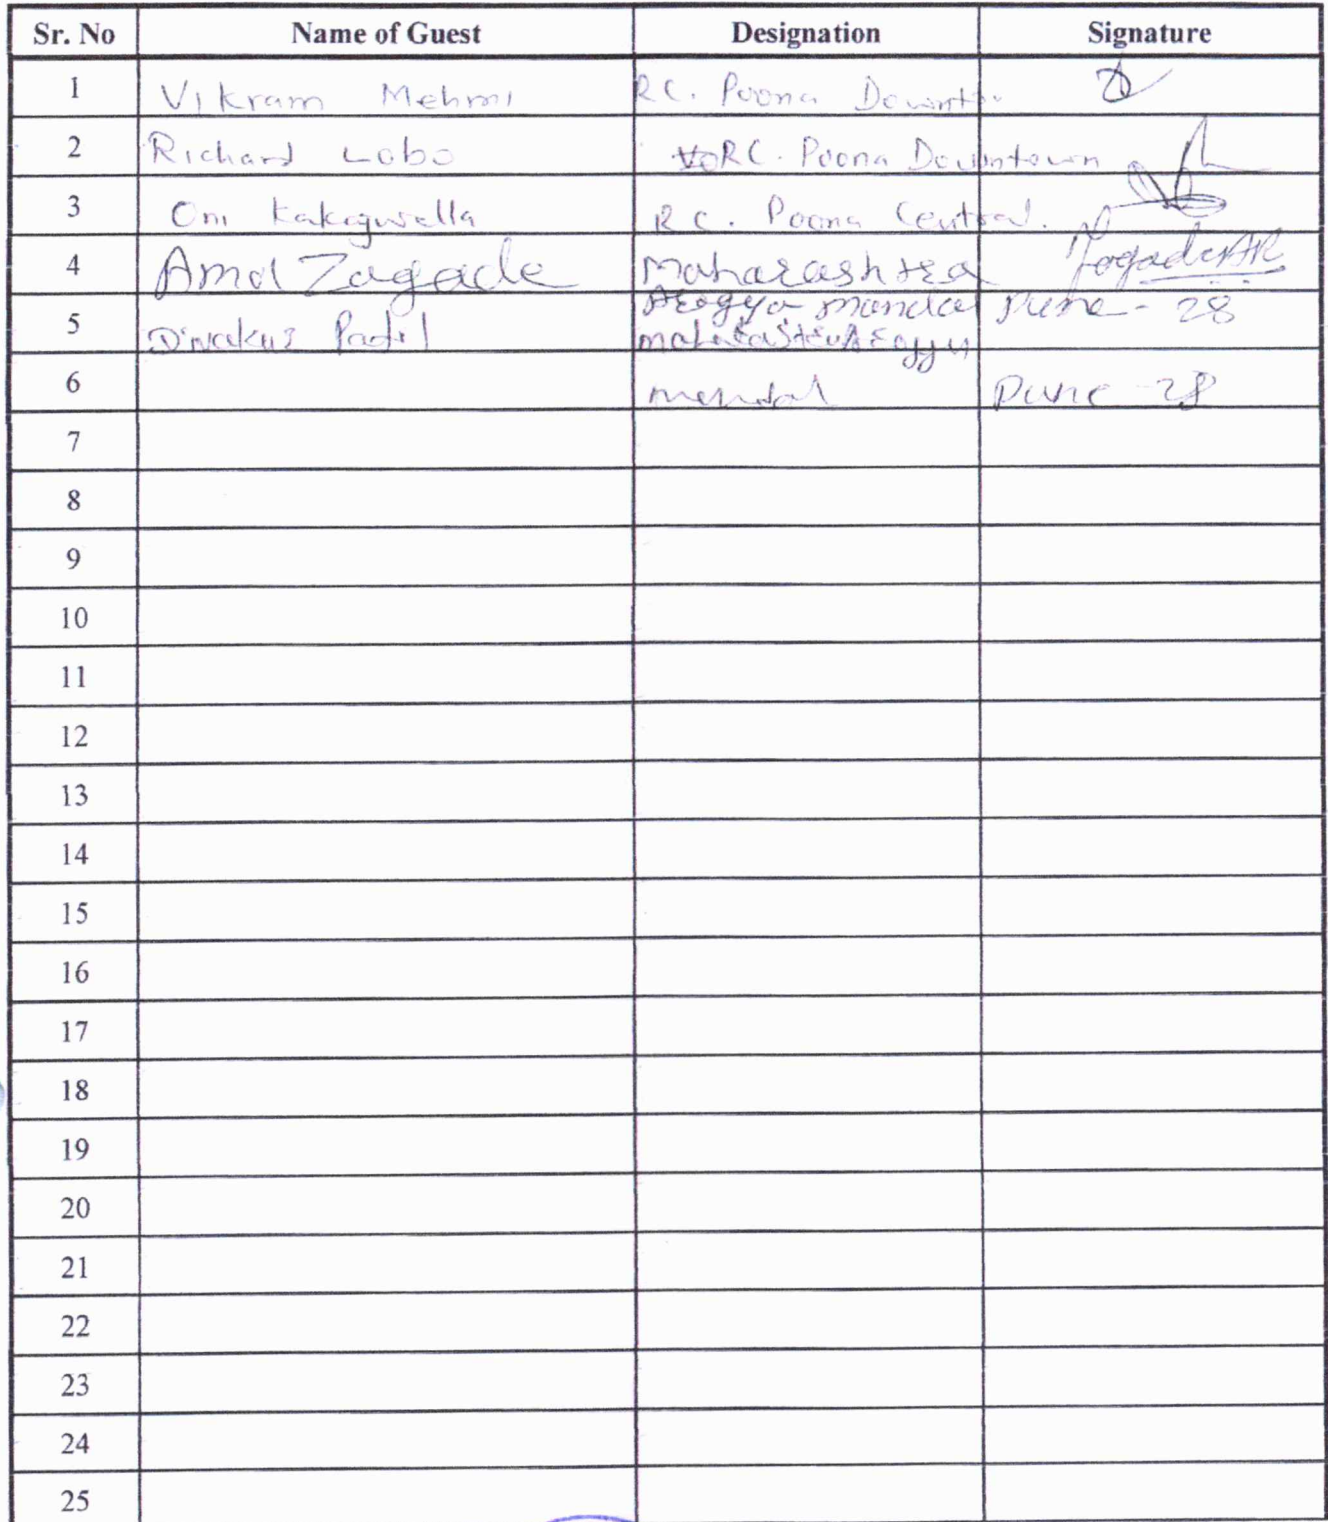 Sr. No Name of Guest Designation Signature
1 Vikram Mehmi RC. Poona Downtow
2 Richard Lobo RC. Poona Downtown
3 Om R C. Poona Central.
4 Amol Zagade Maharashtra ZagadeAR
Arogya mandal Pune - 28
5 Divakar Patil
6 mendal Pune - 28
7
8
9
10
11
12
13
14
15
16
17
18
19
20
21
22
23
24
25